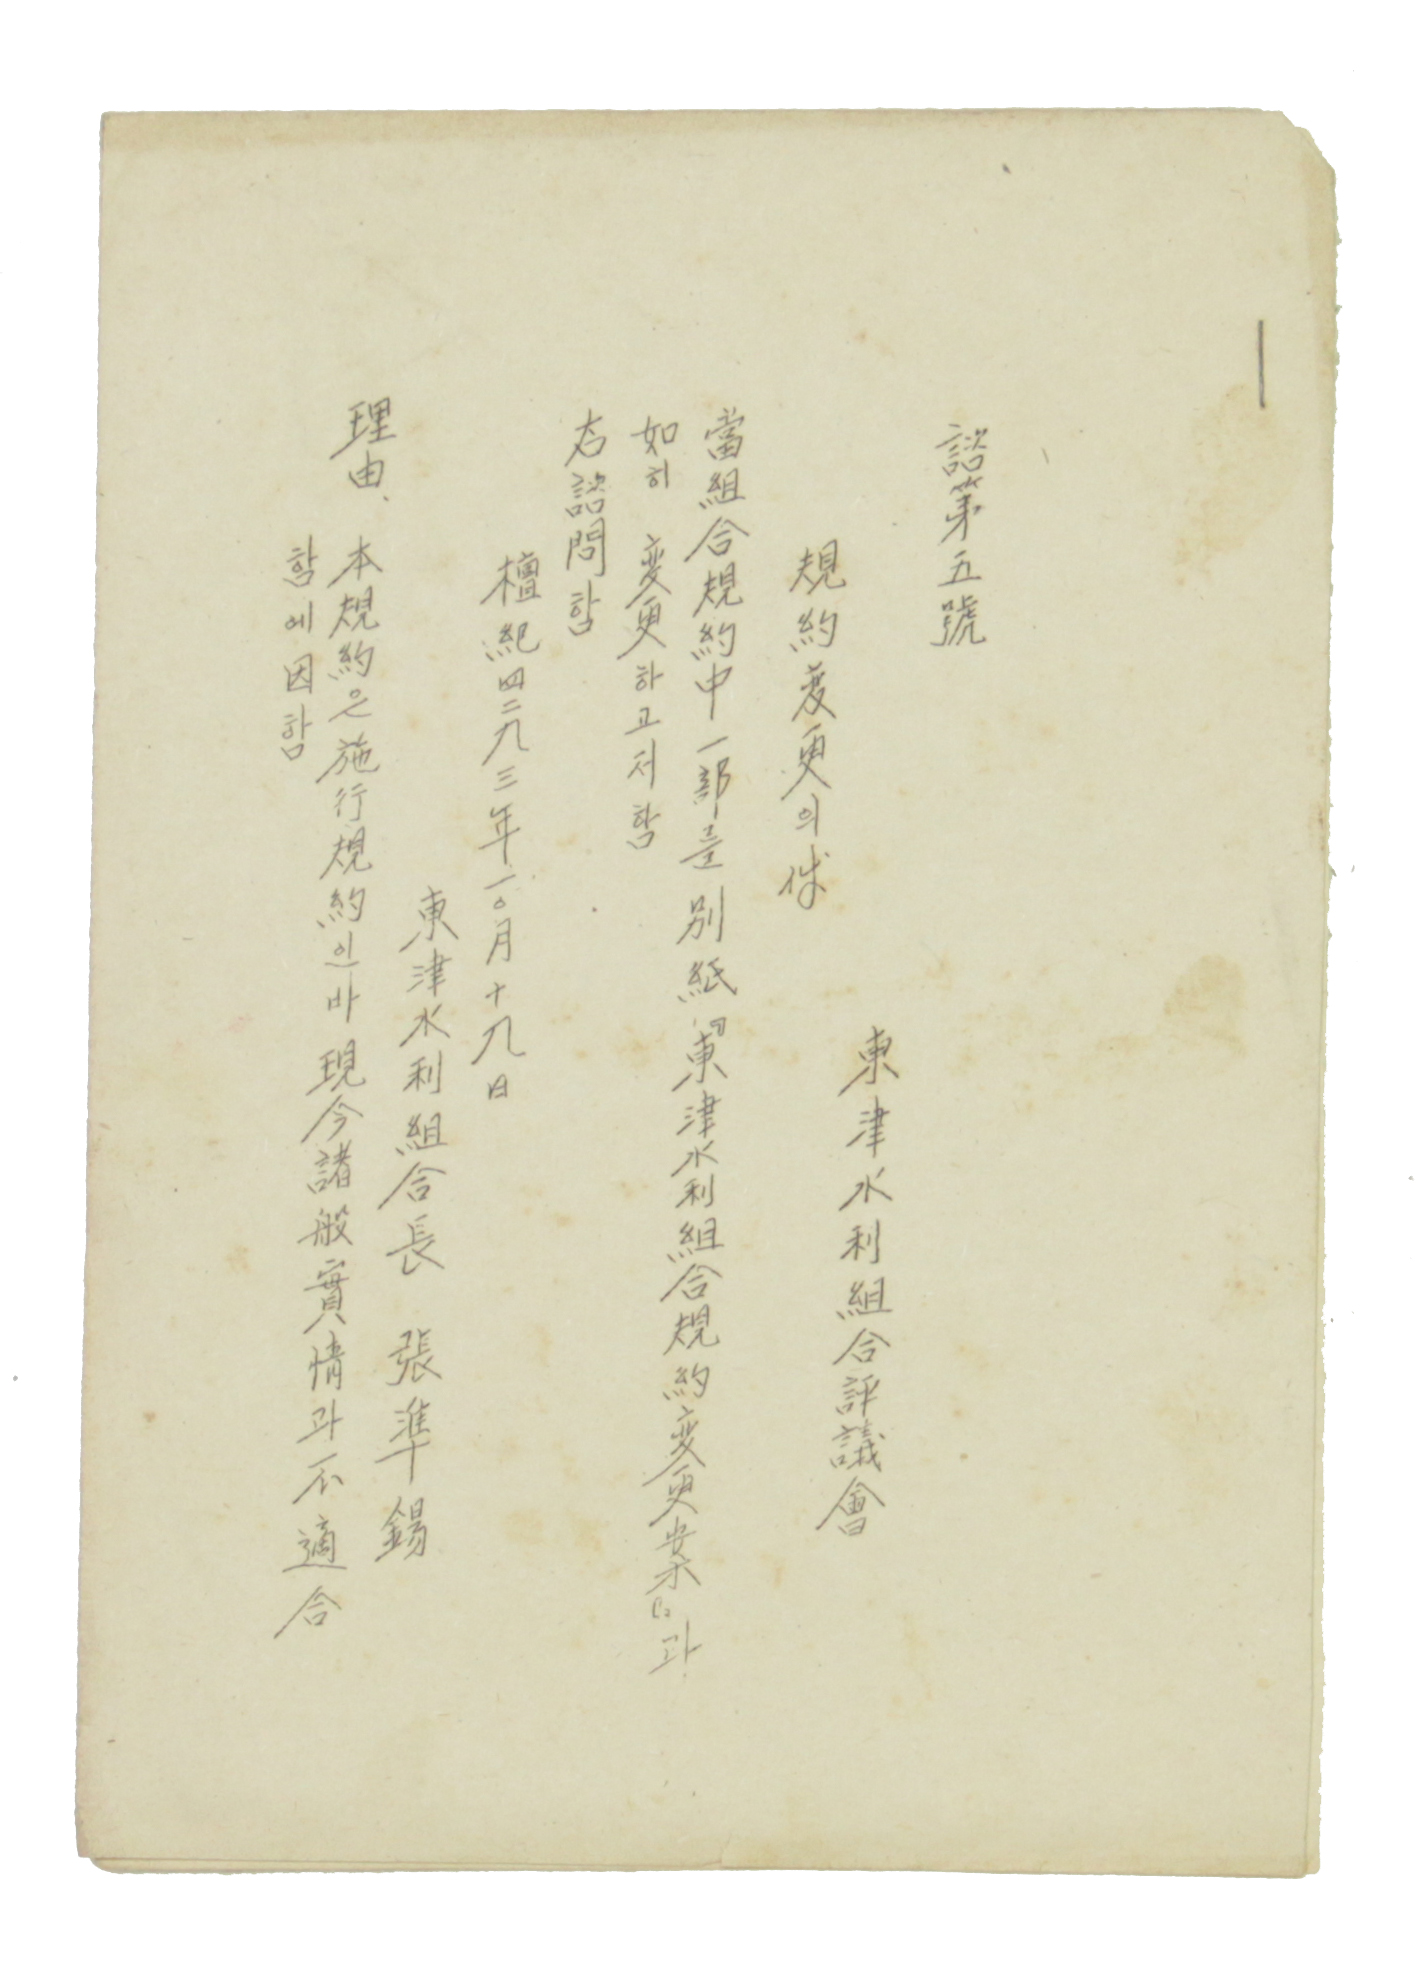 諮第五號
東津水利組合評議會
規約変更의件
當組合規約中一部를別紙『東津水利組合規約変更案』과
如히 変更하고저함
右諮問함
檀紀四二九三年一〇月十九日
東津水利組合長 張準錫
理由、本規約은施行規約인바 現今諸般實情과不適合
함에因함